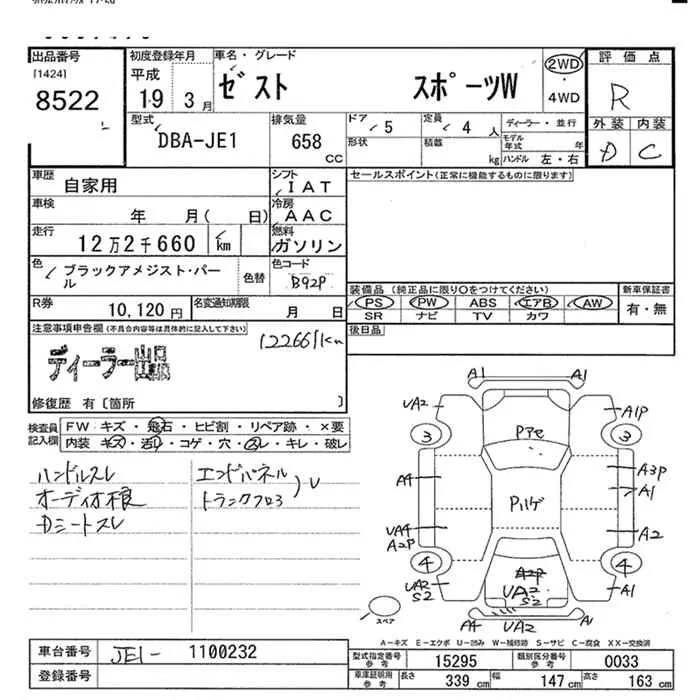 出品番号
[1424]
8522
初度登録年月
平成
19 3月
車名・グレード
ゼスト スポーツW
2WD
・
4WD
評価点
R
外装 内装
D C
型式
DBA-JE1
排気量
658
CC
ドア
5
形状
定員
4人
積載
kg
ディーラー・並行
モデル年式 年
ハンドル 左・右
車歴
自家用
シフト
IAT
車検
年 月( 日)
冷房
AAC
走行
12万2千660 km
燃料
ガソリン
色
ブラックアメジスト・パール
色替
色コード
B92P
R券
10,120円
名変通知期限
月 日
セールスポイント(正常に機能するものに限ります)
装備品(純正品に限り〇をつけてください)
PS PW ABS エアB AW
SR ナビ TV カワ
新車保証書
有・無
後日品
注意事項申告欄(不具合内容等は具体的に記入して下さい)
122661km
ディーラー出品
修復歴 有〔箇所 〕
検査員記入欄
FW キズ・飛石・ヒビ割・リペア跡・×要
内装 キズ・汚れ・コゲ・穴・スレ・キレ・破レ
ハンドルスレ
オーディオ根
Dシートスレ
エンドパネル
トランクフロア
U
A1 A1
UA2 A1P
3 3
Pアセ
A4 A3P
A1
Pハゲ
UA4 A2
A2P
4 4
UA2
S2
A2P
UA2
S2
A1
A4 UA2 A1
スペア
A－キズ E－エクボ U－凹み W－補修跡 S－サビ C－腐食 XX－交換済
車台番号
JE1- 1100232
登録番号
型式指定番号
参考
15295
類別区分番号
参考
0033
車庫証明用
参考
長さ 339 cm 幅 147 cm 高さ 163 cm